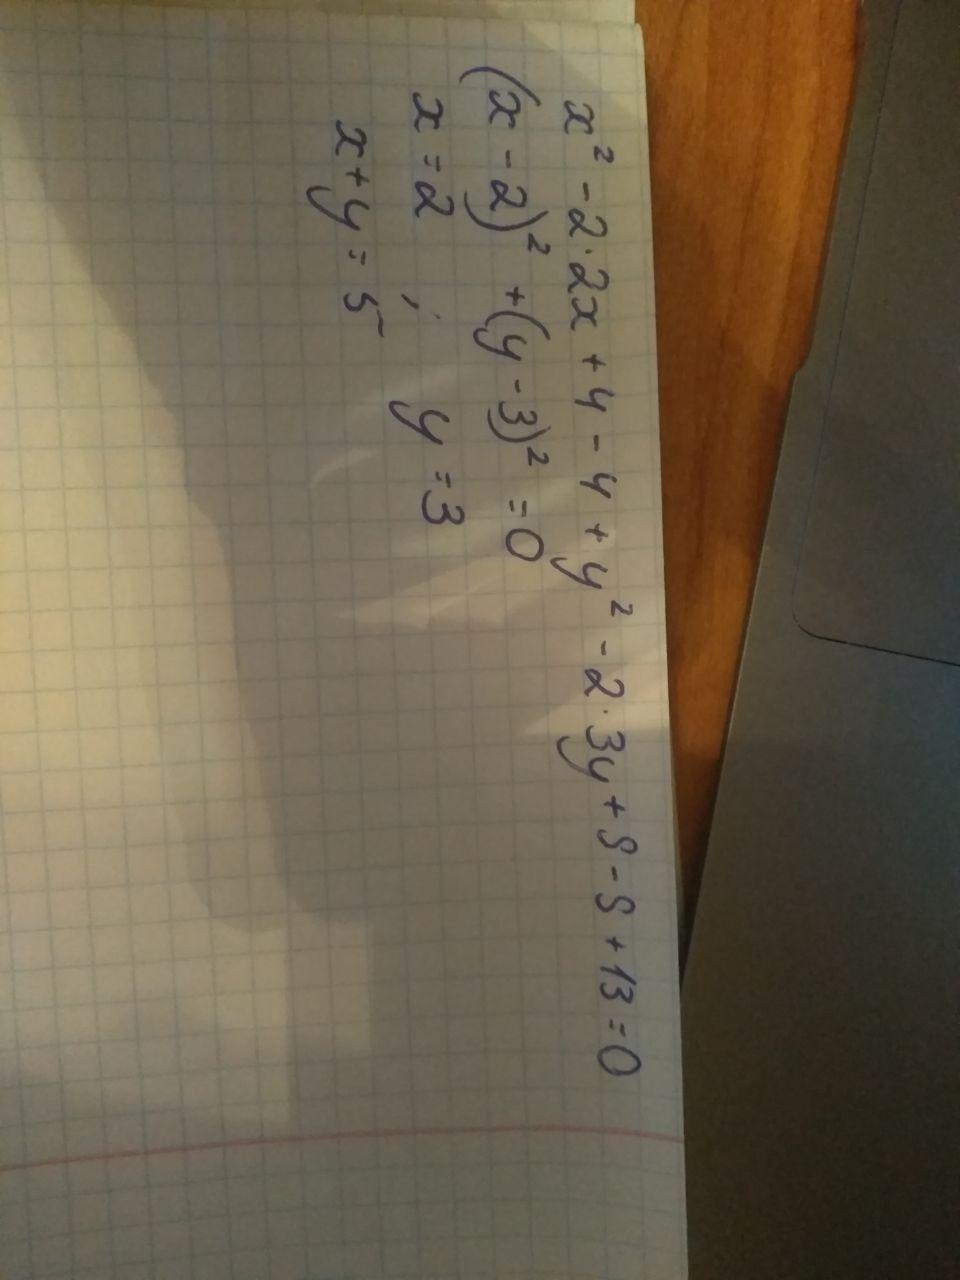 x² - 2·2x + 4 - 4 + y² - 2·3y + 9 - 9 + 13 = 0
(x - 2)² + (y - 3)² = 0
x = 2 ; y = 3
x + y = 5